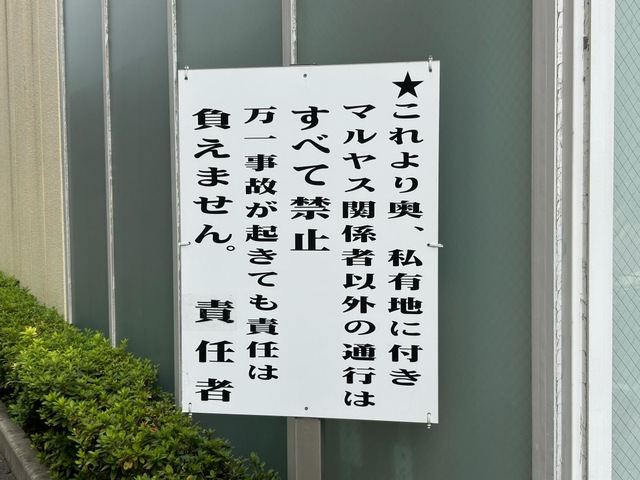 ★これより奥、私有地に付き
マルヤス関係者以外の通行は
すべて禁止
万一事故が起きても責任は
負えません。 責任者